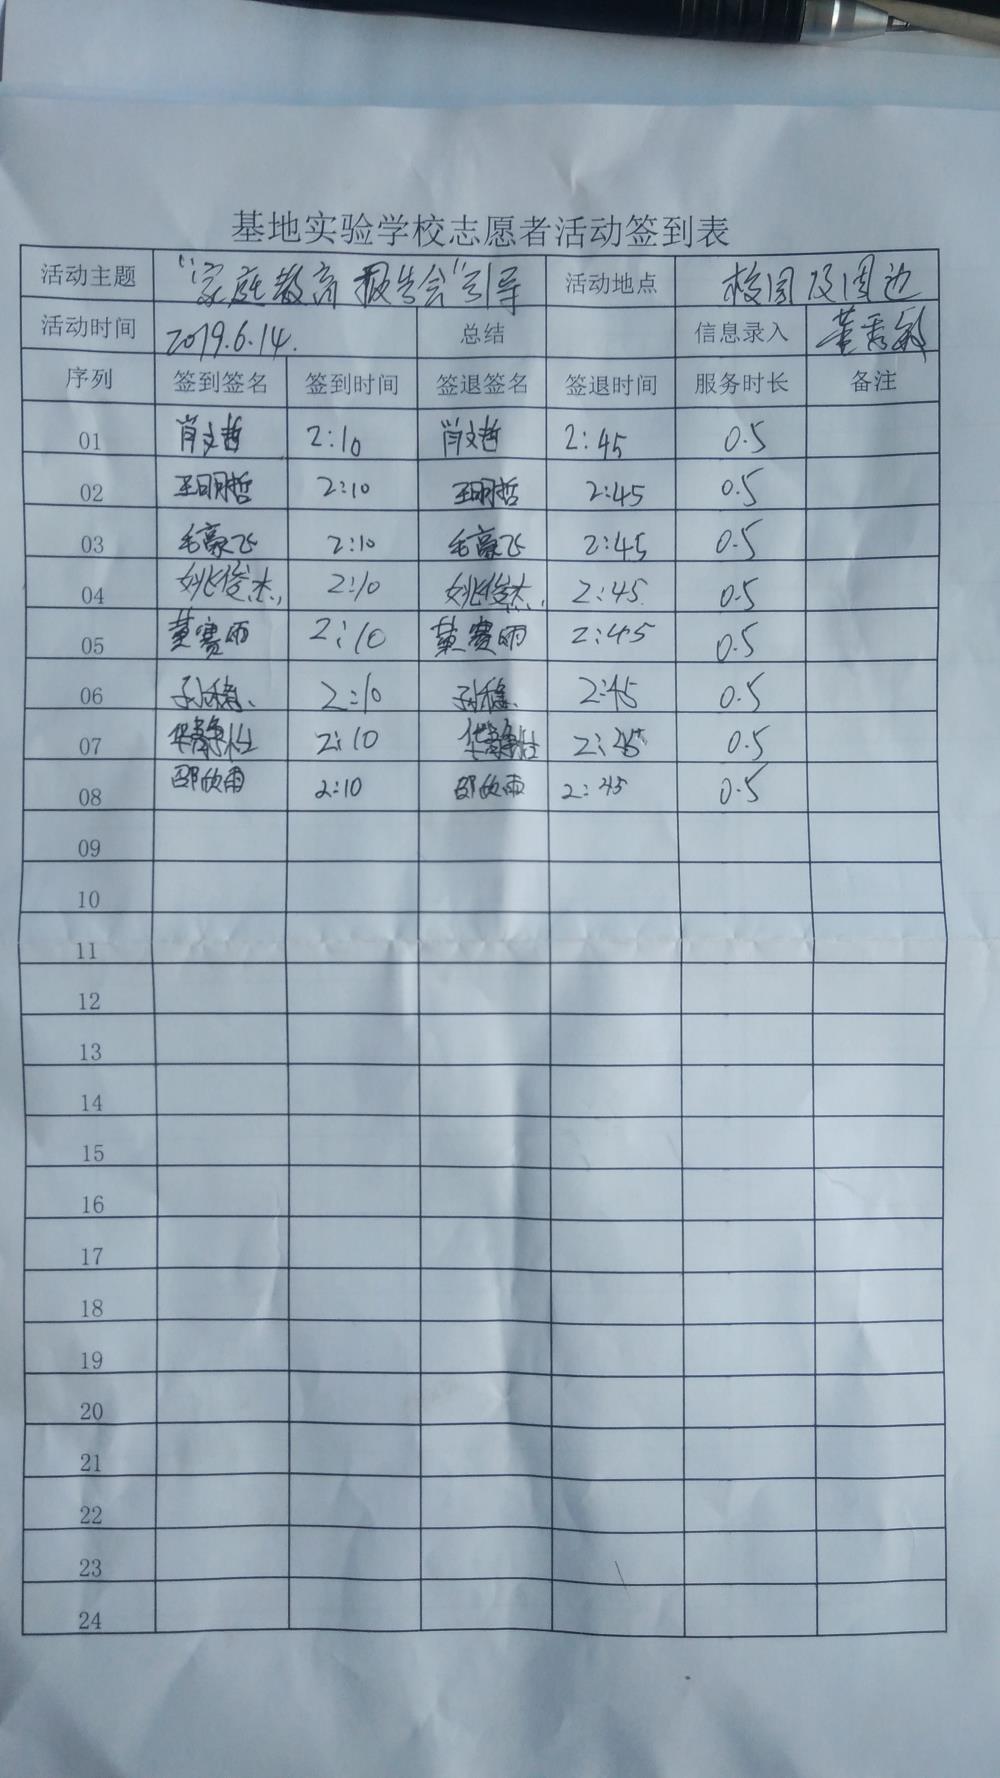 基地实验学校志愿者活动签到表
活动主题 "家庭教育报告会"引导 活动地点 校园及周边
活动时间 2019.6.14. 总结 信息录入 董秀敏
序列 签到签名 签到时间 签退签名 签退时间 服务时长 备注
01 肖文哲 2:10 肖文哲 2:45 0.5
02 王明哲 2:10 王明哲 2:45 0.5
03 毛豪飞 2:10 毛豪飞 2:45 0.5
04 姚俊杰 2:10 姚俊杰 2:45 0.5
05 黄赛雨 2:10 黄赛雨 2:45 0.5
06 2:10 2:45 0.5
07 华静怡 2:10 华静怡 2:45 0.5
08 邵欣雨 2:10 邵欣雨 2:45 0.5
09
10
11
12
13
14
15
16
17
18
19
20
21
22
23
24